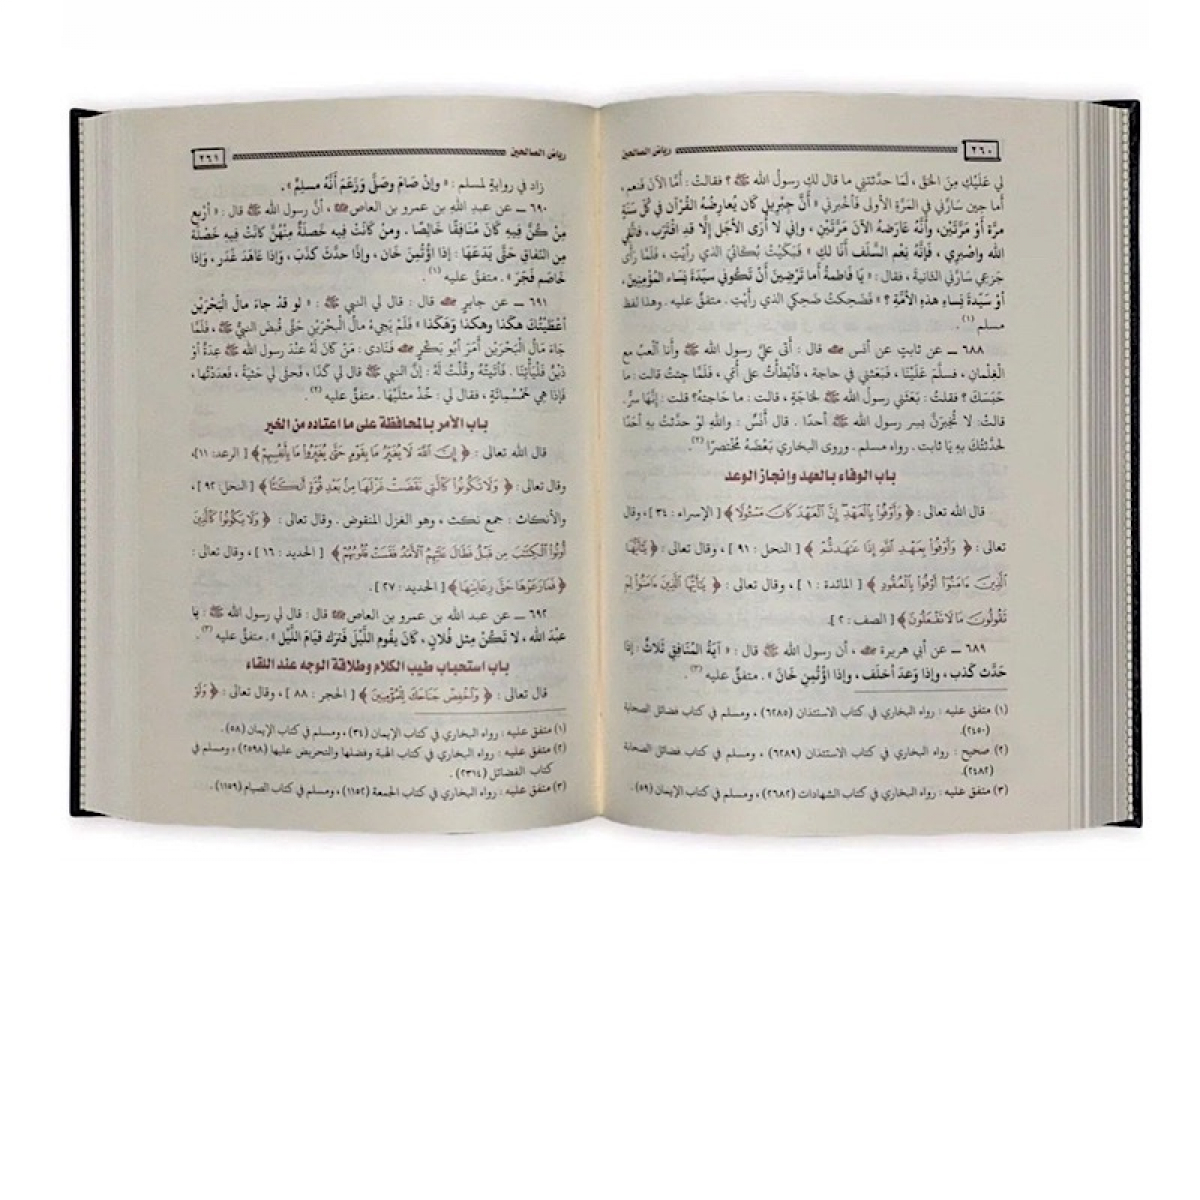 ٢٦٠ رياض الصالحين
لي عَلَيْكِ مِنَ الحَق ، لَمَا حدَّثتني ما قال لكِ رسولُ الله ﷺ ؟ فقالتْ : أَمَّا الآنَ فَنعم ،
أما حِين سَارَّني في المَرَّةِ الأولى فأخبرني « أَنَّ جِبْرِيلَ كَان يُعارِضُهُ القُرْآن في كُلِّ سَنَةٍ
مرَّة أوْ مَرَّتَيْن، وأَنَّه عَارَضهُ الآنَ مَرَّتَيْن ، وإني لا أُرَى الأجَل إلَّا قدِ اقْتَرَب ، فاتَّقِي
الله واصْبِري ، فَإنَّهُ نِعْم السَّلَف أنَا لكِ » فَبكَيْتُ بُكائيَ الذي رأيْتِ ، فَلَمَّا رَأى
جَزعِي سَارَّني الثَّانيةَ ، فقال : « يَا فَاطمةُ أما تَرْضِينَ أنْ تَكُوني سيِّدَةَ نِسَاء المُؤْمِنِينَ ،
أوْ سَيِّدةَ نِساءِ هذهِ الأمَّةِ ؟ » فَضَحِكتُ ضَحِكي الذي رأيْتِ . متفقٌ عليه . وهذا لفظ
مسلم (١) .
٦٨٨ ــ عن ثابتٍ عن أنس ﷺ قال : أَتى عليَّ رسول الله ﷺ وأنا ألْعبُ مع
الغِلمانِ ، فسلَّمَ عَلَيْنَا ، فَبعَثني في حاجة ، فَأبْطَأْتُ على أُمي ، فَلمَّا جِئتُ قالت : ما
حَبَسَكَ ؟ فقلتُ : بَعثَني رسولُ الله ﷺ لحَاجَةٍ ، قالت : ما حَاجتهُ؟ قلت : إنَّها سرٌّ.
قالتْ: لا تُخبِرَنَّ بسِر رسول الله ﷺ أحدًا . قال أَنَسٌ : والله لوْ حدَّثتُ بهِ أحَدًا
لحَدَّثتُكَ بِهِ يَا ثابت . رواه مسلم . وروى البخاري بَعْضَهُ مُخْتصَرًا (٢).
باب الوفاء بالعهد وإنجاز الوعد
قال الله تعالى : ﴿ وَأَوْفُوا بِالْعَهْدِ إِنَّ الْعَهْدَ كَانَ مَسْئُولًا ﴾ [ الإسراء : ٣٤ ]، وقال
تعالى: ﴿ وَأَوْفُوا بِعَهْدِ اللَّهِ إِذَا عَاهَدتُّمْ ﴾ [ النحل : ٩١ ] ، وقال تعالى : ﴿ يَا أَيُّهَا
الَّذِينَ آمَنُوا أَوْفُوا بِالْعُقُودِ ﴾ [ المائدة : ١ ] ، وقال تعالى: ﴿ يَا أَيُّهَا الَّذِينَ آمَنُوا لِمَ
تَقُولُونَ مَا لَا تَفْعَلُونَ ﴾ [ الصف : ٢ ].
٦٨٩ ــ عن أبي هريرة ﷺ ، أن رسول الله ﷺ قال : « آيَةُ المُنَافِقِ ثَلاثٌ : إذَا
حَدَّث كَذب ، وإذا وَعدَ أخلَف ، وإذا اؤْتُمِنَ خَانَ » . متفقٌ عليه (٣) .
(١) متفق عليه : رواه البخاري في كتاب الاستئذان (٦٢٨٥) ، ومسلم في كتاب فضائل الصحابة
(٢٤٥٠).
(٢) صحيح : رواه البخاري في كتاب الاستئذان (٦٢٨٩) ، ومسلم في كتاب فضائل الصحابة
(٢٤٨٢).
(٣) متفق عليه : رواه البخاري في كتاب الشهادات (٢٦٨٢) ، ومسلم في كتاب الإيمان (٥٩) .
رياض الصالحين ٢٦١
زاد في روايةٍ لمسلم : « وإنْ صَامَ وصَلَّى وَزَعَمَ أَنَّهُ مسلِمٌ » .
٦٩٠ ــ عن عبدِ اللهِ بن عمرو بن العاص ﷺ ، أنَّ رسول الله ﷺ قال : « أرْبع
مِنْ كُنَّ فِيهِ كَانَ مُنَافِقًا خَالِصًا . ومنْ كَانَتْ فِيه خَصلَةٌ مِنْهُنَّ كانَتْ فِيه خَصْلَة
مِن النِّفاقِ حَتَّى يَدَعَهَا : إذا اؤْتُمِنَ خَان ، وإذَا حدَّثَ كذَبَ ، وَإذَا عَاهَدَ غَدَر ، وَإذَا
خَاصَم فَجَرَ » . متفقٌ عليه (١)
٦٩١ ــ عن جابرٍ ﷺ قال : قال لي النبي ﷺ : « لو قدْ جاءَ مالُ الْبَحْرَيْن
أعْطَيْتُكَ هكَذا وهكذا وَهَكَذا » فَلَمْ يَجِيءْ مالُ الْبحْرَيْنِ حَتَّى قُبِضَ النبيُّ ﷺ ، فَلَمَّا
جَاءَ مَالُ الْبَحْرَيْنِ أَمَرَ أبُو بَكْرٍ ﷺ فَنَادى : مَنْ كَانَ لَهُ عنْدَ رسول الله ﷺ عِدَةٌ أوْ
دَيْنٌ فَلْيَأْتِنَا . فَأتَيتُهُ وقُلْتُ لَهُ : إنَّ النبي ﷺ قال لي كَذَا ، فَحثَى لي حَثْيَةً ، فَعدَدْتُها ،
فَإذا هِي خَمْسُمِائَةٍ ، فقال لي : خُذْ مثلَيْهَا . متفقٌ عليه (٢) .
باب الأمر بالمحافظة على ما اعتاده من الخير
قال الله تعالى : ﴿ إِنَّ اللَّهَ لَا يُغَيِّرُ مَا بِقَوْمٍ حَتَّى يُغَيِّرُوا مَا بِأَنْفُسِهِمْ ﴾ [الرعد: ١١]،
وقال تعالى: ﴿ وَلَا تَكُونُوا كَالَّتِي نَقَضَتْ غَزْلَهَا مِنْ بَعْدِ قُوَّةٍ أَنْكَاثًا ﴾ [ النحل: ٩٢ ] ،
والأنكاث : جمع نكث ، وهو الغزل المنقوض . وقال تعالى : ﴿ وَلَا يَكُونُوا كَالَّذِينَ
أُوتُوا الْكِتَابَ مِنْ قَبْلُ فَطَالَ عَلَيْهِمُ الْأَمَدُ فَقَسَتْ قُلُوبُهُمْ ﴾ [ الحديد : ١٦ ] ، وقال تعالى :
﴿ فَمَا رَعَوْهَا حَقَّ رِعَايَتِهَا ﴾ [ الحديد: ٢٧ ] .
٦٩٢ ــ عن عبد الله بن عمرو بن العاص ﷺ قال: قال لي رسول الله ﷺ : يا
عبْدَ الله ، لا تَكُنْ مِثل فُلان ، كَانَ يقُوم اللَّيْلَ فَترَكَ قيَامَ اللَّيْل » . متفقٌ عليه (٣) .
باب استحباب طيب الكلام وطلاقة الوجه عند اللقاء
قال تعالى : ﴿ وَاخْفِضْ جَنَاحَكَ لِلْمُؤْمِنِينَ ﴾ [ الحجر : ٨٨ ] ، وقال تعالى : ﴿ وَلَوْ
(١) متفق عليه : رواه البخاري في كتاب الإيمان (٣٤) ، ومسلم في كتاب الإيمان (٥٨).
(٢) متفق عليه : رواه البخاري في كتاب الهبة وفضلها والتحريض عليها (٢٥٩٨) ، ومسلم في
كتاب الفضائل (٢٣١٤) .
(٣) متفق عليه : رواه البخاري في كتاب الجمعة (١١٥٢)، ومسلم في كتاب الصيام (١١٥٩) .